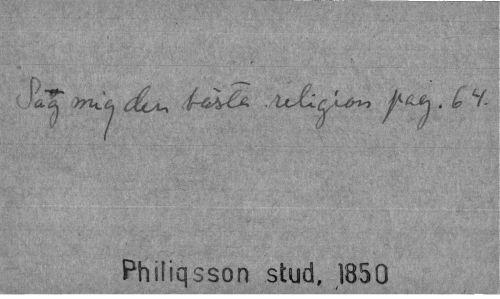 Säg mig den bästa religion pag. 64.
Philiqsson stud, 1850